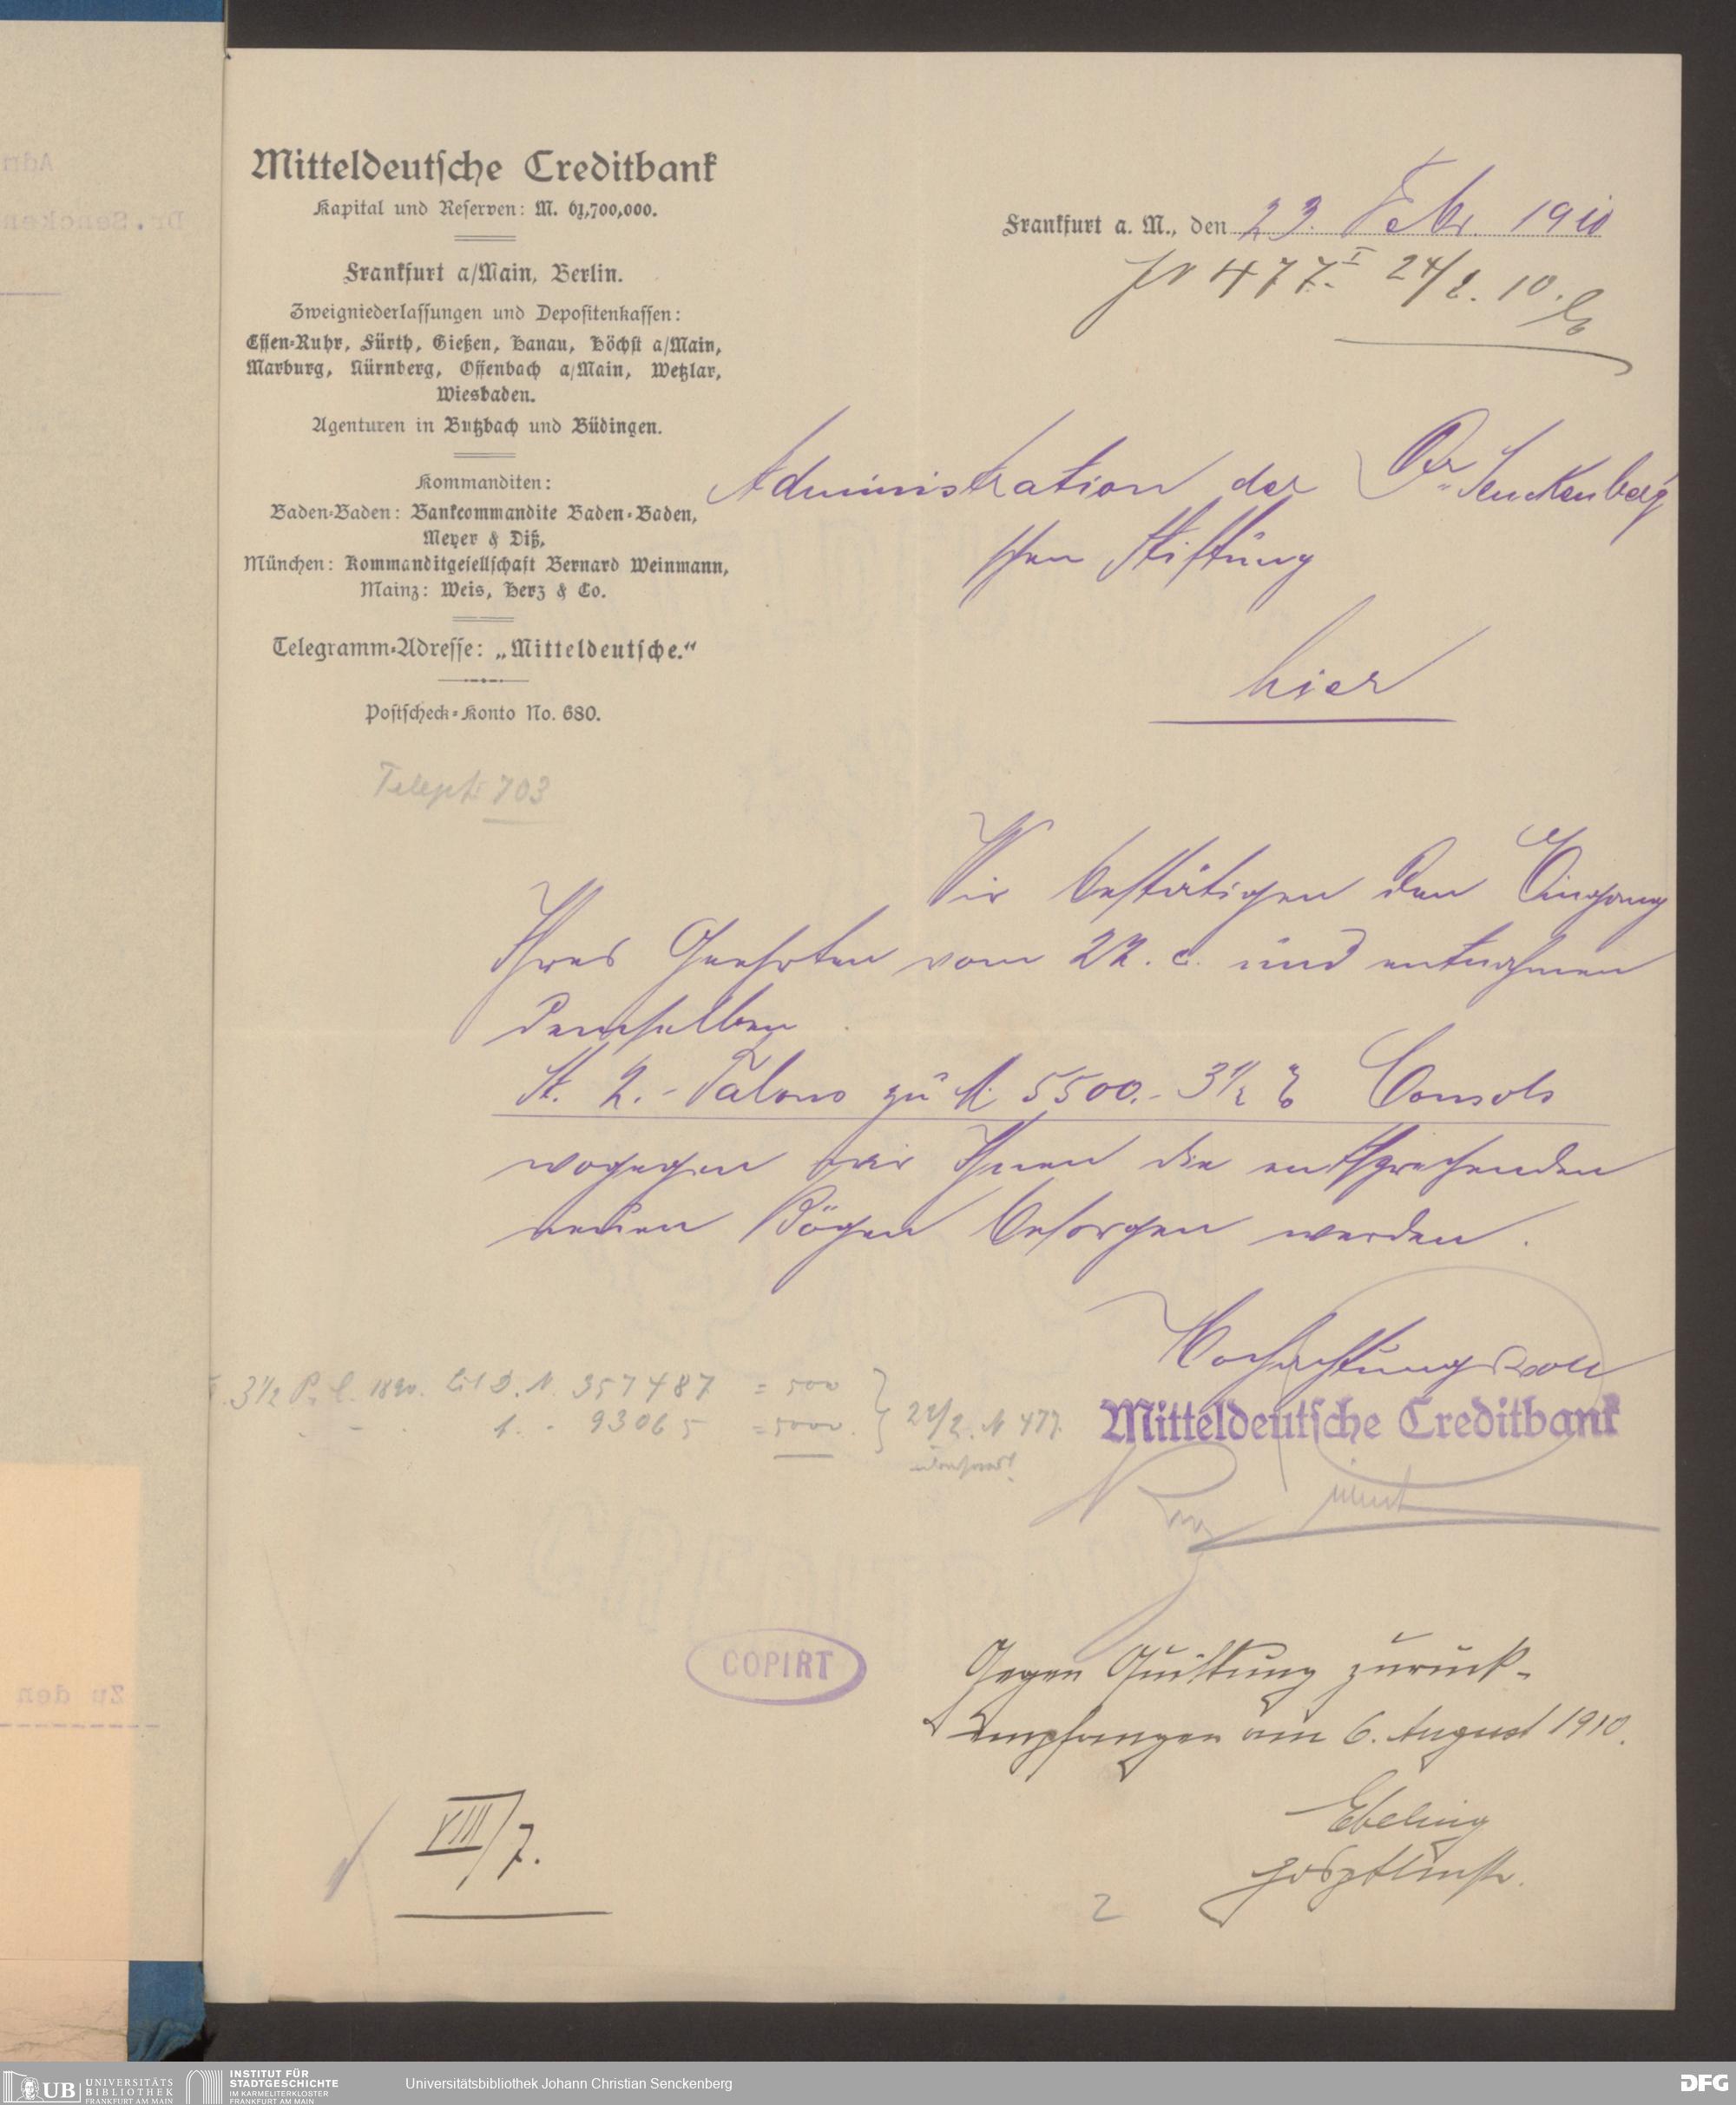 Mitteldeutsche Creditbank
Kapital und Reserven: M. 61,700,000.
Frankfurt a/Main, Berlin.
Zweigniederlassungen und Depositenkassen:
Essen-Ruhr, Fürth, Gießen, Hanau, Höchst a/Main,
Marburg, Nürnberg, Offenbach a/Main, Wetzlar,
Wiesbaden.
Agenturen in Butzbach und Büdingen.
Kommanditen:
Baden-Baden: Bankcommandite Baden-Baden,
Meyer & Diß,
München: Kommanditgesellschaft Bernard Weinmann,
Mainz: Weis, Herz & Co.
Telegramm-Adresse: „Mitteldeutsche."
Postscheck-Konto No. 680.
Teleph 703
Frankfurt a. M., den 23. Febr. 1910
JN 477 I 24/2. 10.
Administration der Dr. Senckenberg
schen Stiftung
hier
Wir bestätigen den Eingang
Ihres Geehrten vom 22. c. und entnahmen
demselben
St. 2.- Talons zu M. 5500.- 3 1/2 % Consols
wogegen wir Ihnen die entsprechenden
neuen Bögen besorgen werden.
Hochachtungsvoll
Mitteldeutsche Creditbank
3 1/2 P. C. 1890. Lit D. N. 357487 = 500
93065 = 5000.
22/2. N 477.
COPIRT
Gegen Quittung zurück-
empfangen am 6. August 1910.
Ebeling
VIII/7.
2
Zu den
Dr. Sencken
UB UNIVERSITÄTS
BIBLIOTHEK
FRANKFURT AM MAIN
INSTITUT FÜR
STADTGESCHICHTE
IM KARMELITERKLOSTER
FRANKFURT AM MAIN
Universitätsbibliothek Johann Christian Senckenberg
DFG